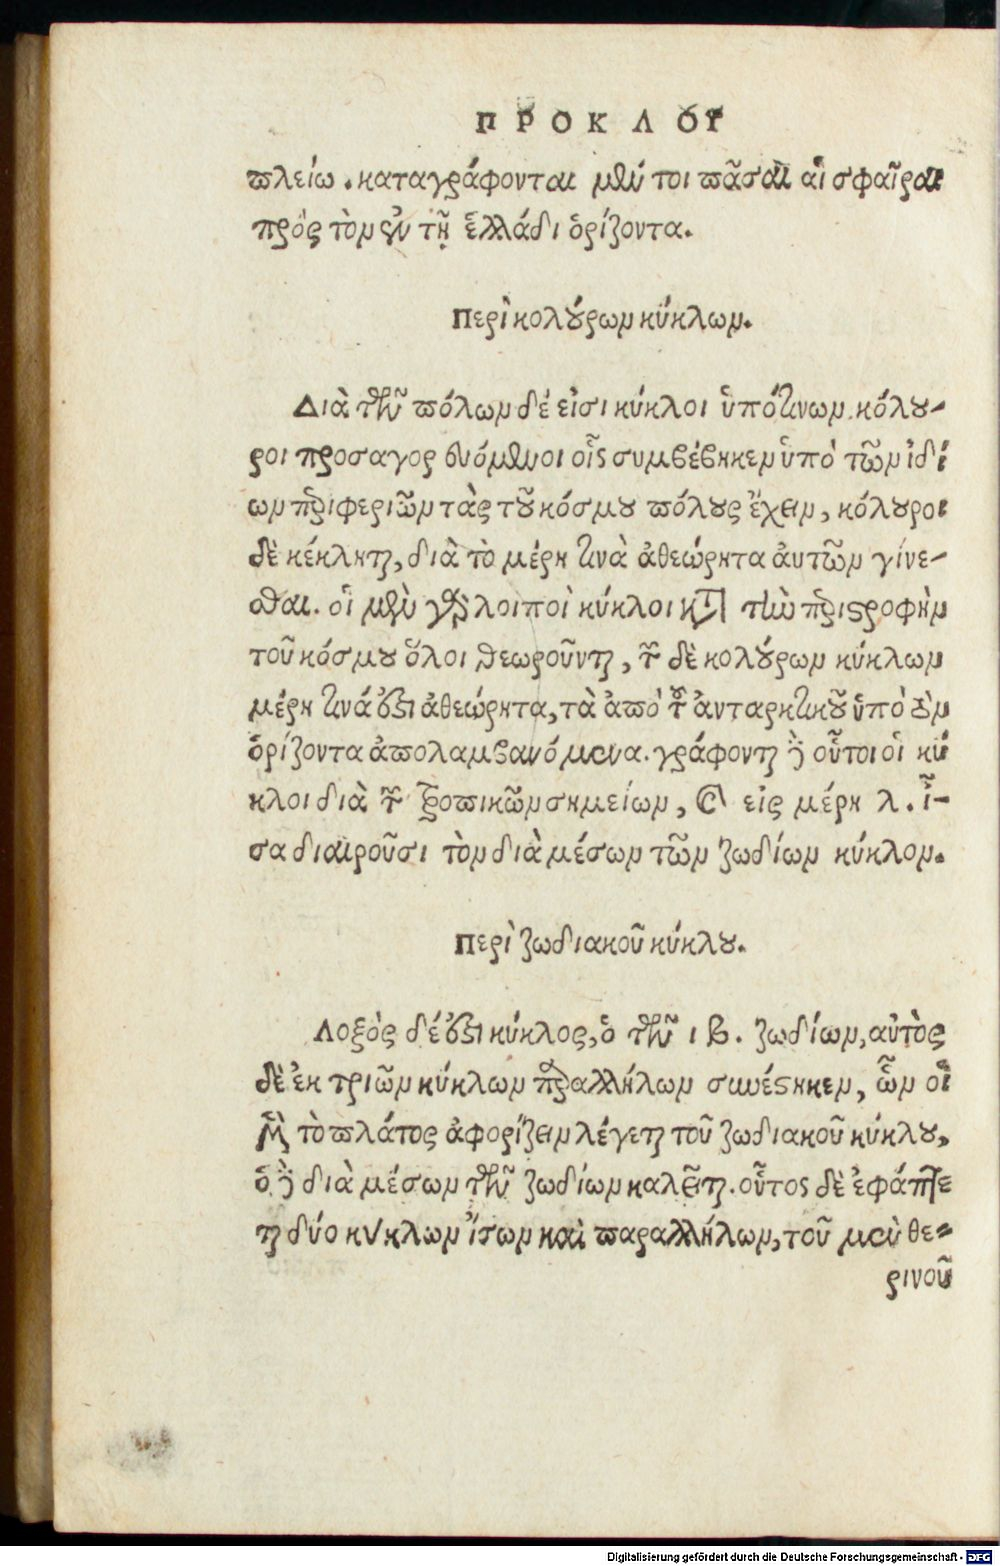 ΠΡΟΚΛΟΥ
πλείω. καταγράφονται μέν τοι πᾶσαι αἱ σφαῖραι
πρὸς τὸν ἐν τῇ ἑλλάδι ὁρίζοντα.
Περὶ κολούρων κύκλων.
Διὰ τῶν πόλων δέ εἰσι κύκλοι ὑπό τινων κόλου-
ροι προσαγορευόμενοι οἷς συμβέβηκεν ὑπὸ τῶν ἰδί
ων περιφεριῶν τὰς τοῦ κόσμου πόλους ἔχειν, κόλουροι
δὲ κέκληται, διὰ τὸ μέρη τινὰ ἀθεώρητα ἀυτῶν γίνε-
σθαι. οἱ μὲν γὰρ λοιποὶ κύκλοι κατὰ τὴν περιστροφὴν
τοῦ κόσμου ὅλοι θεωροῦνται, τῶν δὲ κολούρων κύκλων
μέρη τινά ἐστι ἀθεώρητα, τὰ ἀπὸ τοῦ ἀνταρκτικοῦ ὑπὸ τὸν
ὁρίζοντα ἀπολαμβανόμενα. γράφονται δὲ οὗτοι οἱ κύ
κλοι διὰ τῶν τροπικῶν σημείων, καὶ εἰς μέρη λ. ἶ-
σα διαιροῦσι τὸν διὰ μέσων τῶν ζωδίων κύκλον.
Περὶ ζωδιακοῦ κύκλου.
Λοξὸς δέ ἐστι κύκλος, ὁ τῶν ιβ. ζωδίων, αὐτὸς
δὲ ἐκ τριῶν κύκλων παραλλήλων συνέστηκεν, ὧν οἱ
μὲν τὸ πλάτος ἀφορίζειν λέγεται τοῦ ζωδιακοῦ κύκλου,
ὁ δὲ διὰ μέσων τῶν ζωδίων καλεῖται. οὗτος δὲ ἐφάπτε
ται δύο κυκλων ἴσων καὶ παραλλήλων, τοῦ μὲν θε-
ρινοῦ
Digitalisierung gefördert durch die Deutsche Forschungsgemeinschaft - DFG